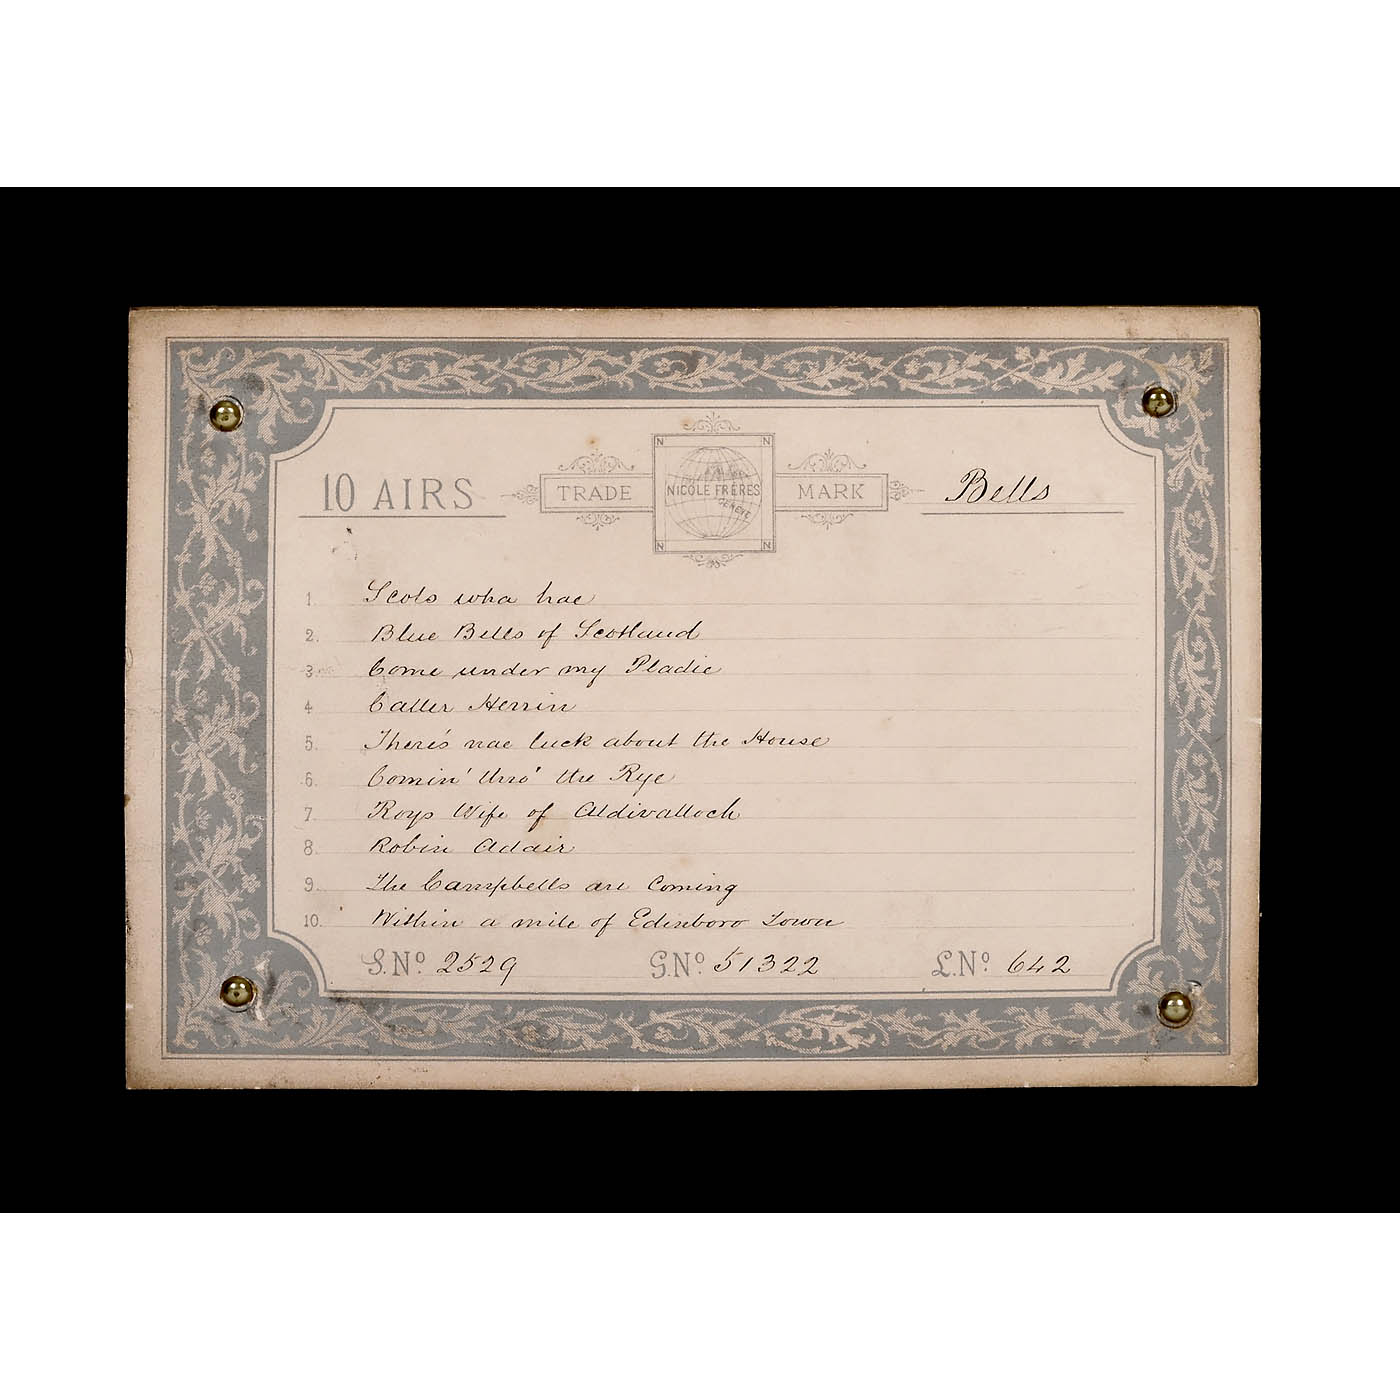 10 AIRS
TRADE NICOLE FRÈRES MARK
GENÈVE
Bells
N N
N N
1. Scots wha hae
2. Blue Bells of Scotland
3. Come under my Pladie
4. Caller Herrin
5. There's nae luck about the House
6. Comin' thro' the Rye
7. Roys Wife of Aldivalloch
8. Robin Adair
9. The Campbells are Coming
10. Within a mile of Edinboro Town
S.Nº 2529 G.Nº 51322 L.Nº 642